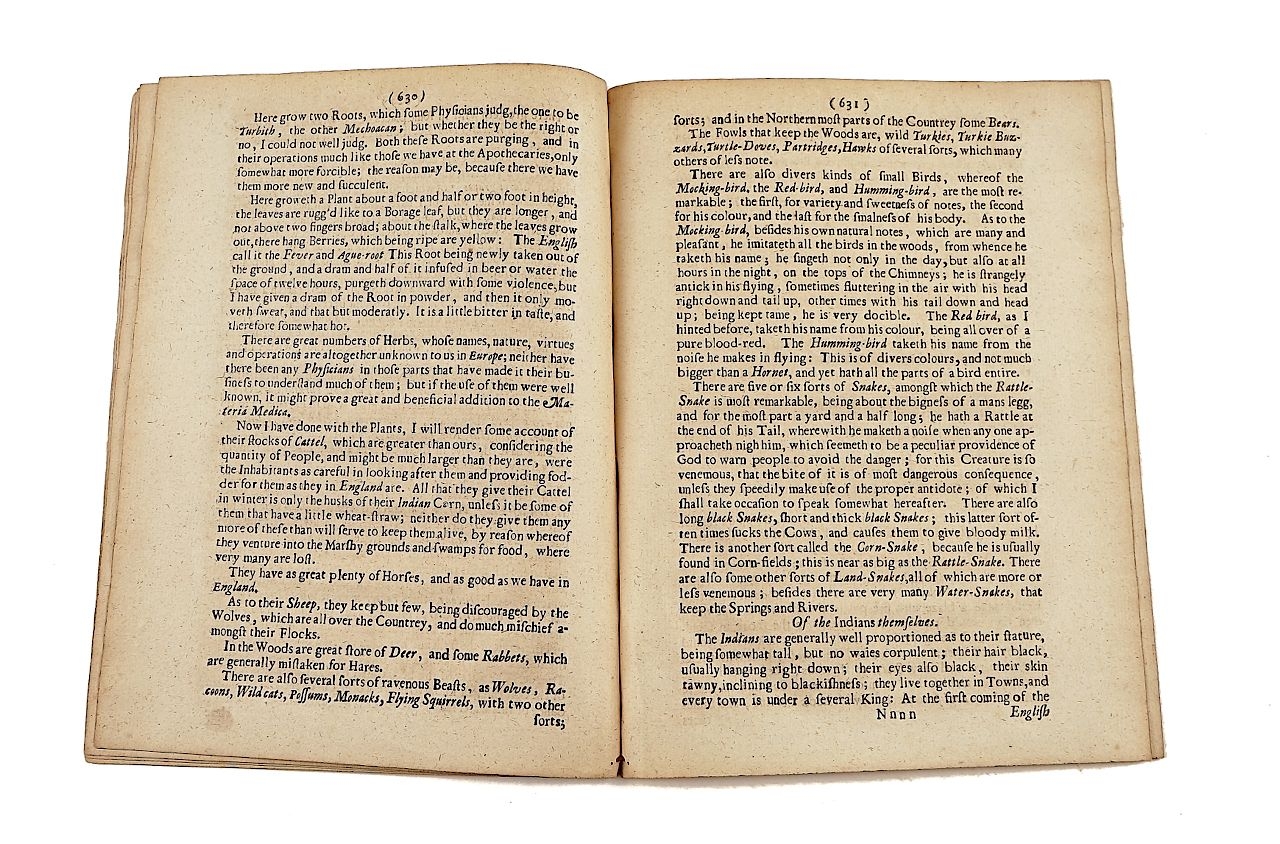 (630)
Here grow two Roots, which ſome Phyſicians judg, the one to be
Turbith, the other Mechoacan; but whether they be the right or
no, I could not well judg. Both theſe Roots are purging, and in
their operations much like thoſe we have at the Apothecaries, only
ſomewhat more forcible; the reaſon may be, becauſe there we have
them more new and ſucculent.
Here groweth a Plant about a foot and half or two foot in height,
the leaves are rugg'd like to a Borage leaf, but they are longer, and
not above two fingers broad; about the ſtalk, where the leaves grow
out, there hang Berries, which being ripe are yellow: The Engliſh
call it the Fever and Ague-root This Root being newly taken out of
the ground, and a dram and half of it infuſed in beer or water the
ſpace of twelve hours, purgeth downward with ſome violence, but
I have given a dram of the Root in powder, and then it only mo-
veth ſweat, and that but moderatly. It is a little bitter in taſte, and
therefore ſomewhat hot.
There are great numbers of Herbs, whoſe names, nature, virtues
and operations are altogether unknown to us in Europe; neither have
there been any Phyſicians in thoſe parts that have made it their bu-
ſineſs to underſtand much of them; but if the uſe of them were well
known, it might prove a great and beneficial addition to the Ma-
teria Medica.
Now I have done with the Plants, I will render ſome account of
their ſtocks of Cattel, which are greater than ours, conſidering the
quantity of People, and might be much larger than they are, were
the Inhabitants as careful in looking after them and providing fod-
der for them as they in England are. All that they give their Cattel
in winter is only the husks of their Indian Corn, unleſs it be ſome of
them that have a little wheat-ſtraw; neither do they give them any
more of theſe than will ſerve to keep them alive, by reaſon whereof
they venture into the Marſhy grounds and ſwamps for food, where
very many are loſt.
They have as great plenty of Horſes, and as good as we have in
England.
As to their Sheep, they keep but few, being diſcouraged by the
Wolves, which are all over the Countrey, and do much miſchief a-
mongſt their Flocks.
In the Woods are great ſtore of Deer, and ſome Rabbets, which
are generally miſtaken for Hares.
There are alſo ſeveral ſorts of ravenous Beaſts, as Wolves, Ra-
coons, Wild cats, Poſſums, Monacks, Flying Squirrels, with two other
ſorts;
(631)
ſorts; and in the Northern moſt parts of the Countrey ſome Bears.
The Fowls that keep the Woods are, wild Turkies, Turkie Buz-
zards, Turtle-Doves, Partridges, Hawks of ſeveral ſorts, which many
others of leſs note.
There are alſo divers kinds of ſmall Birds, whereof the
Mocking-bird, the Red-bird, and Humming-bird, are the moſt re-
markable; the firſt, for variety and ſweetneſs of notes, the ſecond
for his colour, and the laſt for the ſmalneſs of his body. As to the
Mocking-bird, beſides his own natural notes, which are many and
pleaſant, he imitateth all the birds in the woods, from whence he
taketh his name; he ſingeth not only in the day, but alſo at all
hours in the night, on the tops of the Chimneys; he is ſtrangely
antick in his flying, ſometimes fluttering in the air with his head
right down and tail up, other times with his tail down and head
up; being kept tame, he is very docible. The Red bird, as I
hinted before, taketh his name from his colour, being all over of a
pure blood-red. The Humming-bird taketh his name from the
noiſe he makes in flying: This is of divers colours, and not much
bigger than a Hornet, and yet hath all the parts of a bird entire.
There are five or ſix ſorts of Snakes, amongſt which the Rattle-
Snake is moſt remarkable, being about the bigneſs of a mans legg,
and for the moſt part a yard and a half long; he hath a Rattle at
the end of his Tail, wherewith he maketh a noiſe when any one ap-
proacheth nigh him, which ſeemeth to be a peculiar providence of
God to warn people to avoid the danger; for this Creature is ſo
venemous, that the bite of it is of moſt dangerous conſequence,
unleſs they ſpeedily make uſe of the proper antidote; of which I
ſhall take occaſion to ſpeak ſomewhat hereafter. There are alſo
long black Snakes, ſhort and thick black Snakes; this latter ſort of-
ten times ſucks the Cows, and cauſes them to give bloody milk.
There is another ſort called the Corn-Snake, becauſe he is uſually
found in Corn-fields; this is near as big as the Rattle-Snake. There
are alſo ſome other ſorts of Land-Snakes, all of which are more or
leſs venemous; beſides there are very many Water-Snakes, that
keep the Springs and Rivers.
Of the Indians themſelves.
The Indians are generally well proportioned as to their ſtature,
being ſomewhat tall, but no waies corpulent; their hair black,
uſually hanging right down; their eyes alſo black, their skin
tawny, inclining to blackiſhneſs; they live together in Towns, and
every town is under a ſeveral King: At the firſt coming of the
Nnnn Engliſh